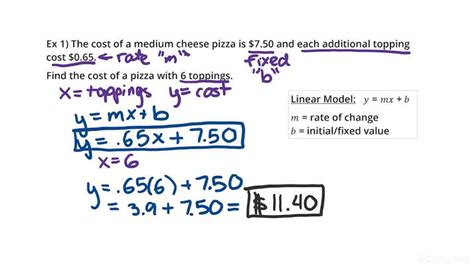 Ex 1) The cost of a medium cheese pizza is $7.50 and each additional topping
cost $0.65. ← rate "m" fixed "b"
Find the cost of a pizza with 6 toppings.
x = toppings y = cost
y = mx + b
y = .65x + 7.50
x = 6
y = .65(6) + 7.50
= 3.9 + 7.50 = $11.40
Linear Model: y = mx + b
m = rate of change
b = initial/fixed value
Study.com